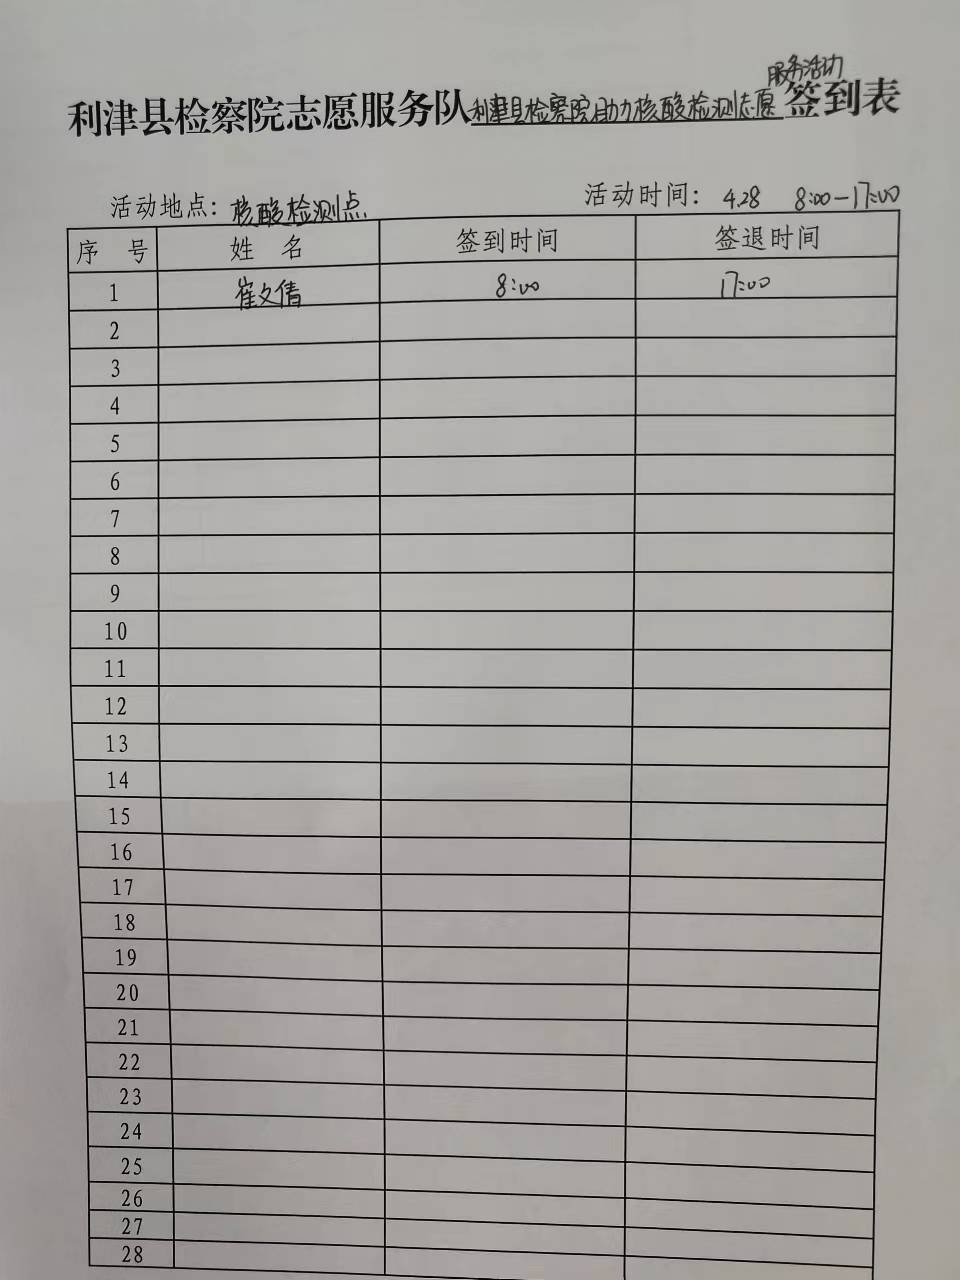 利津县检察院志愿服务队利津县检察院助力核酸检测志愿服务活动签到表
活动地点：核酸检测点 活动时间：4.28 8:00-17:00
序 号 姓 名 签到时间 签退时间
1 崔文倩 8:00 17:00
2
3
4
5
6
7
8
9
10
11
12
13
14
15
16
17
18
19
20
21
22
23
24
25
26
27
28